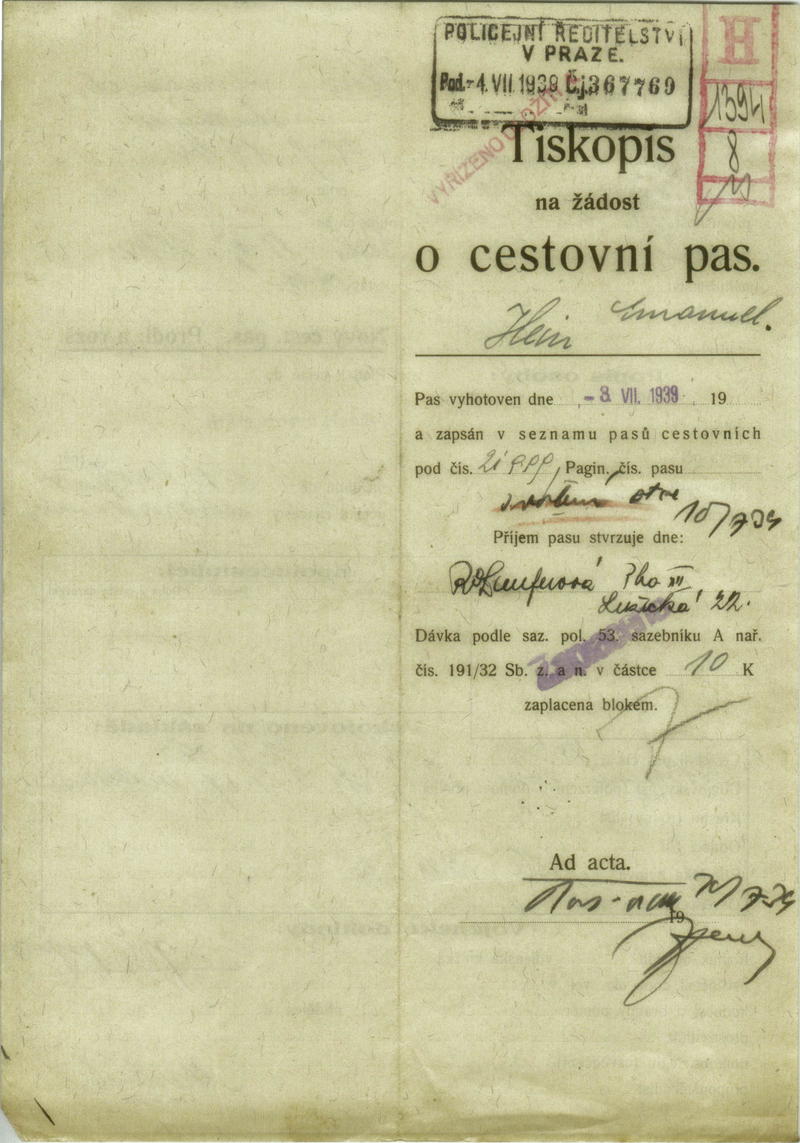 POLICEJNÍ ŘEDITELSTVÍ
V PRAZE.
Pod. -4. VII 1939 Č.j. 367769
H
1394
8
VYŘÍZENO
Tiskopis
na žádost
o cestovní pas.
Hein Emanuel.
Pas vyhotoven dne -8. VII. 1939 19
a zapsán v seznamu pasů cestovních
pod čís. Pagin. čís. pasu
10/7 39
Příjem pasu stvrzuje dne:
Pha XII
22.
Dávka podle saz. pol. 53. sazebníku A nař.
čís. 191/32 Sb. z. a n. v částce 10 K
zaplacena blokem.
Ad acta.
19